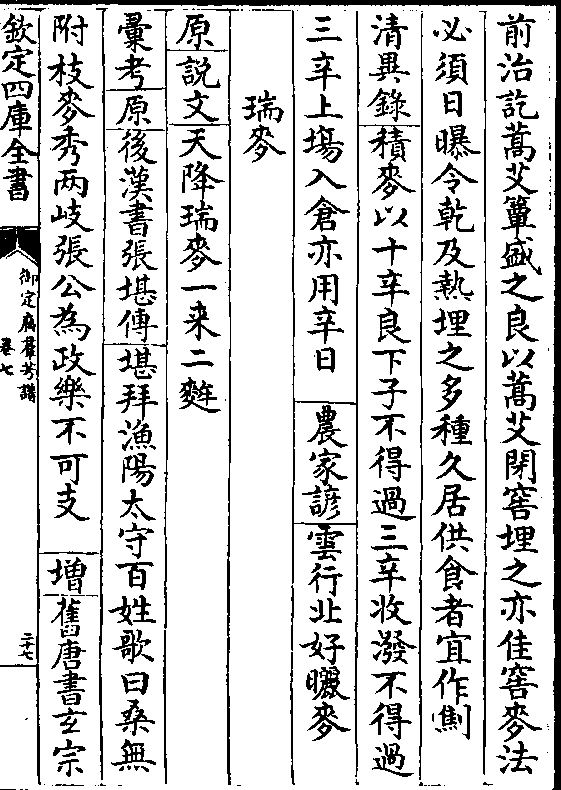 前治訖蒿艾簞盛之良以蒿艾閉窖埋之亦佳窖麥法
必須日曝令乾及熱埋之多種久居供食者宜作劁
清異錄積麥以十辛良下子不得過三辛收潑不得過
三辛上塲入倉亦用辛日 農家諺雲行北好曬麥
瑞麥
原說文天降瑞麥一來二麰
彙考原後漢書張堪傳堪拜漁陽太守百姓歌曰桑無
附枝麥秀兩岐張公為政樂不可支 增舊唐書玄宗
欽定四庫全書
御定廣羣芳譜
卷七
二十七